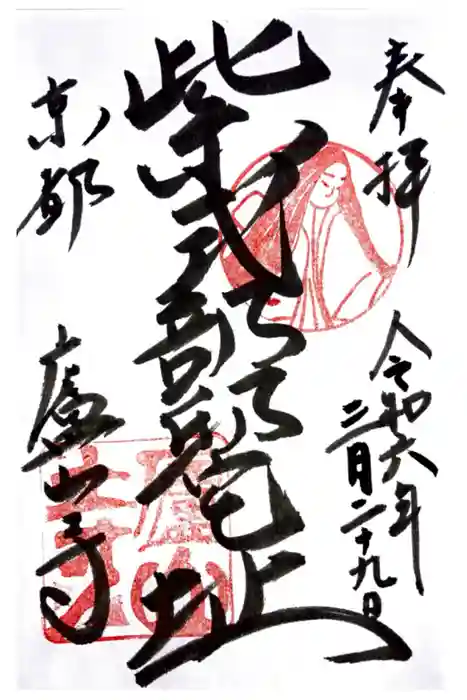 奉拝
令和六年
三月二十九日
紫式部邸宅址
京都
廬山寺
廬山寺